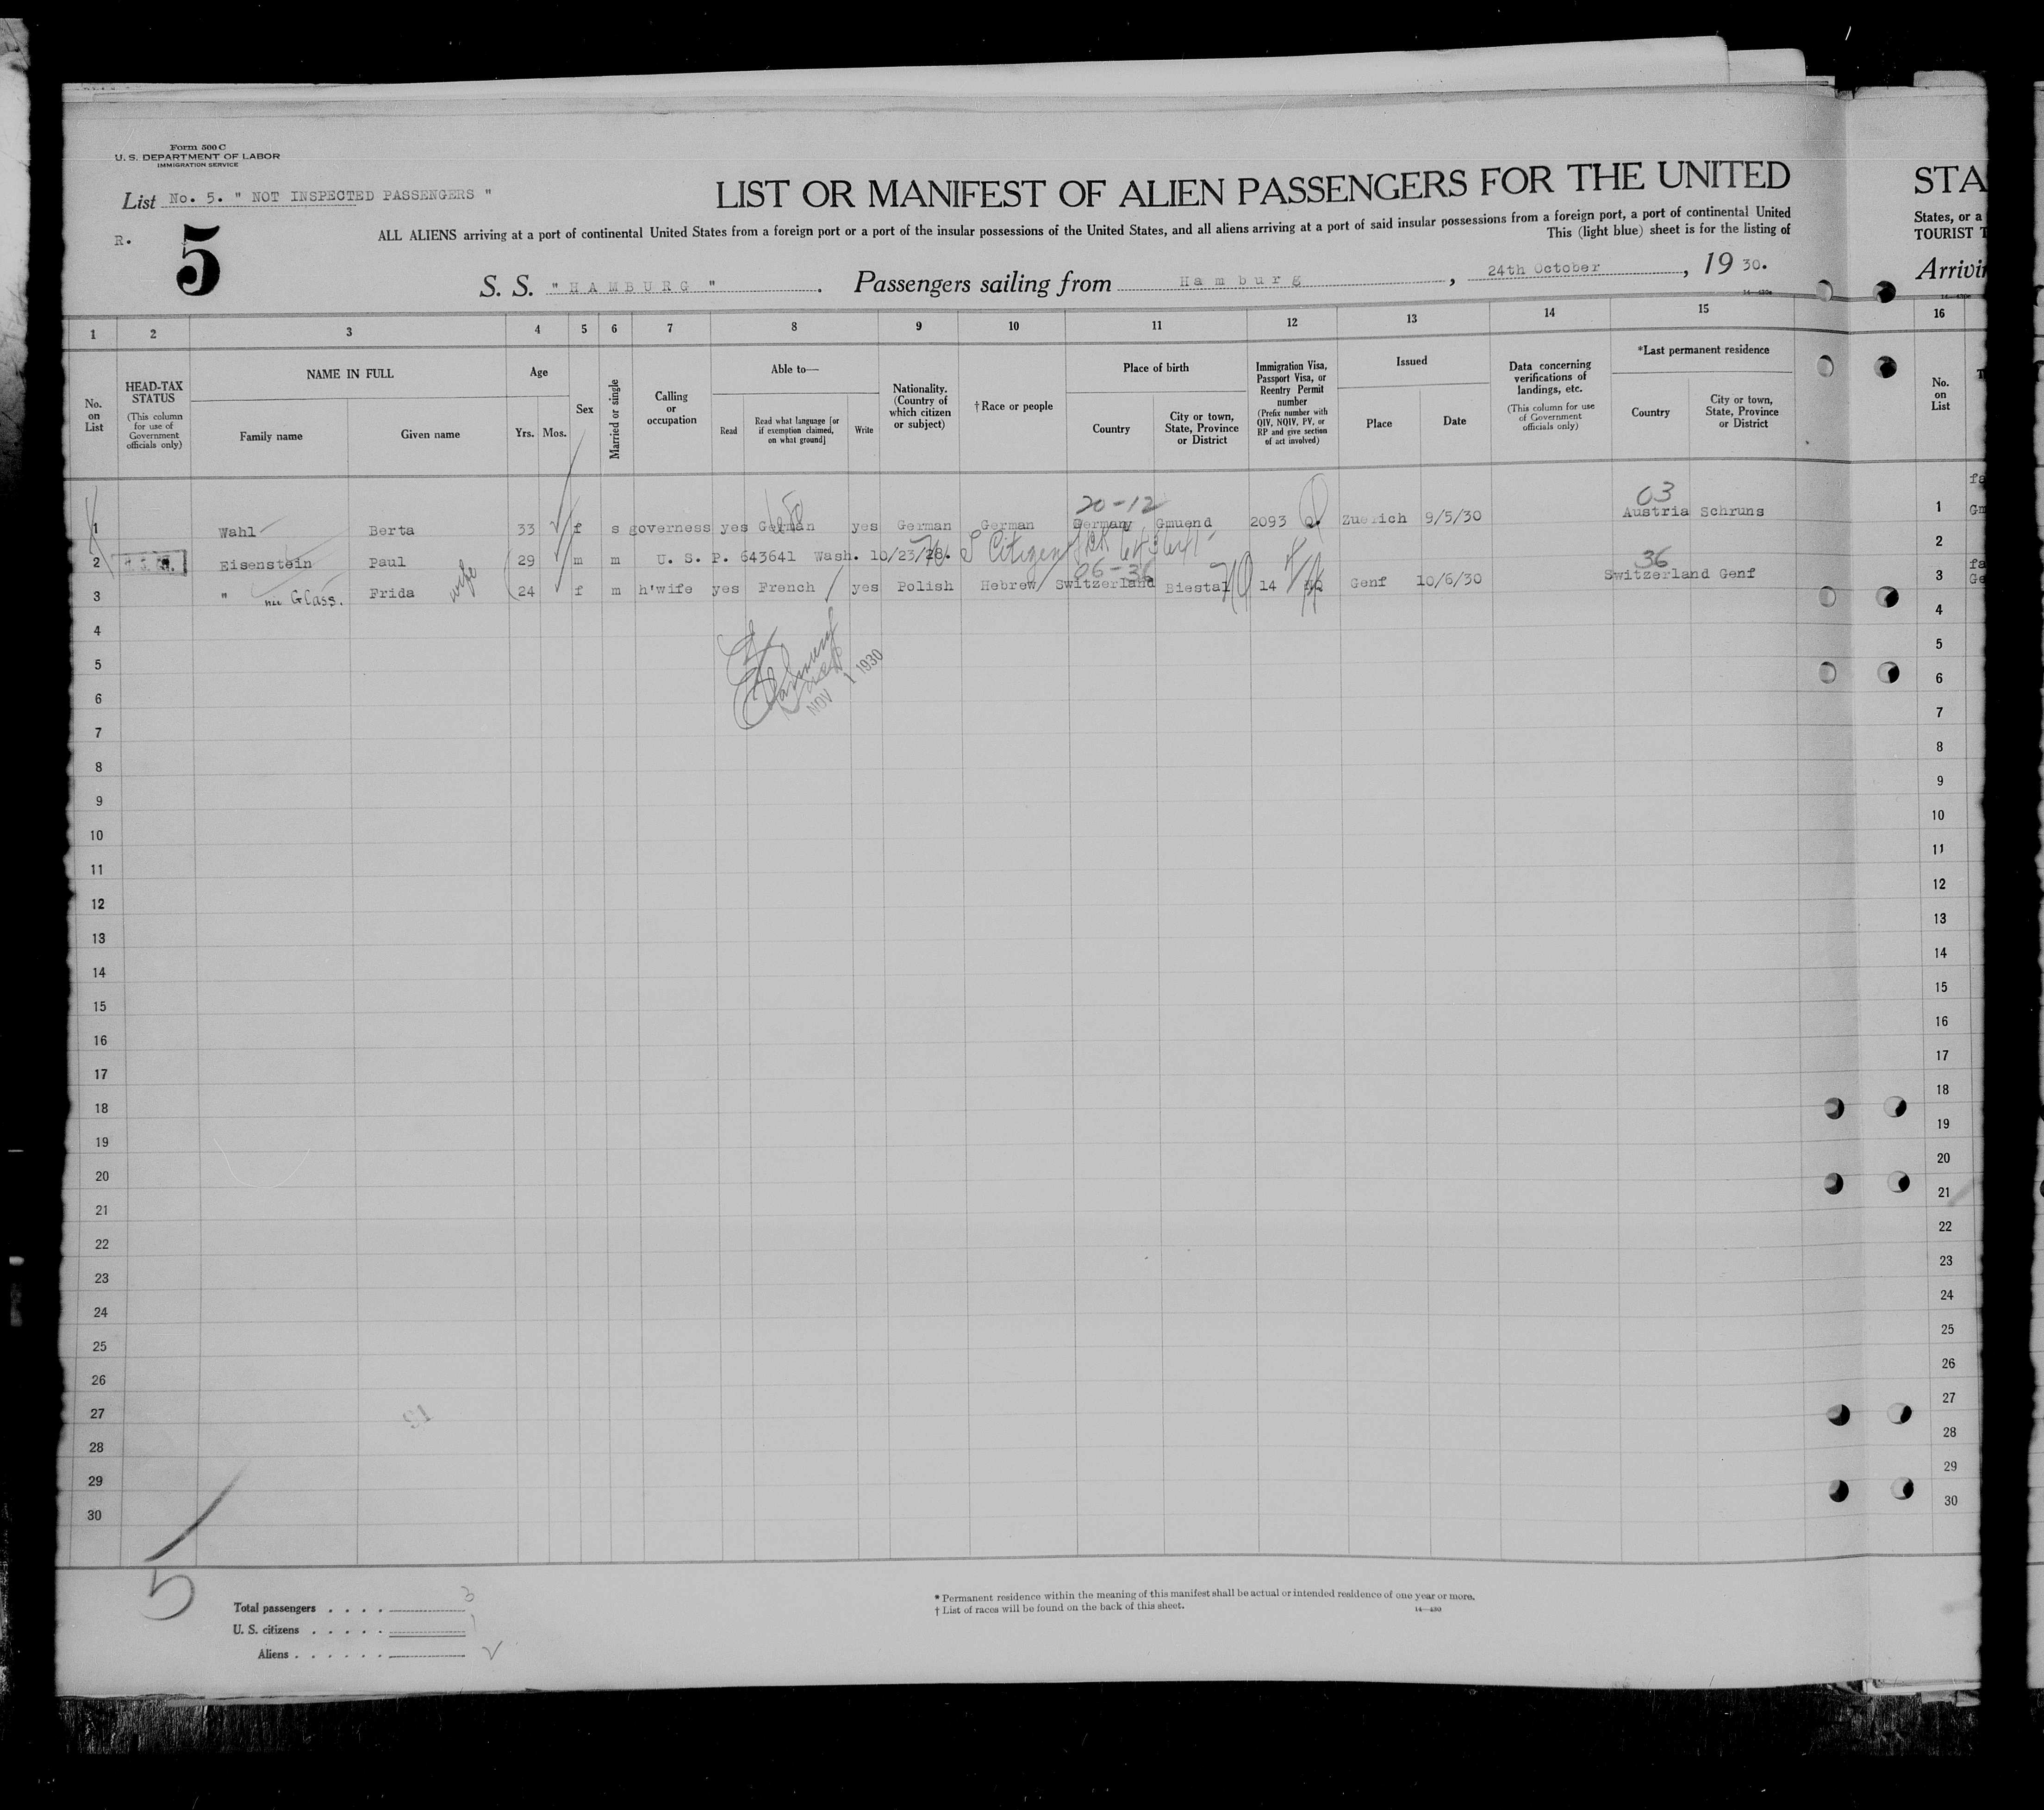 Form 500 C
U. S. DEPARTMENT OF LABOR
IMMIGRATION SERVICE
List No. 5. " NOT INSPECTED PASSENGERS "
R.
5
LIST OR MANIFEST OF ALIEN PASSENGERS FOR THE UNITED
ALL ALIENS arriving at a port of continental United States from a foreign port or a port of the insular possessions of the United States, and all aliens arriving at a port of said insular possessions from a foreign port, a port of continental United
This (light blue) sheet is for the listing of
S. S. " HAMBURG ". Passengers sailing from Hamburg, 24th October, 1930.
14—430
STA
States, or a
TOURIST
Arrivin
1 2 3 4 5 6 7 8 9 10 11 12 13 14 15 16
No. on List
HEAD-TAX STATUS
(This column for use of Government officials only)
NAME IN FULL
Family name
Given name
Age
Yrs. Mos.
Sex
Married or single
Calling or occupation
Able to—
Read
Read what language [or if exemption claimed, on what ground]
Write
Nationality. (Country of which citizen or subject)
†Race or people
Place of birth
Country
City or town, State, Province or District
Immigration Visa, Passport Visa, or Reentry Permit number
(Prefix number with QIV, NQIV, PV, or RP and give section of act involved)
Issued
Place
Date
Data concerning verifications of landings, etc.
(This column for use of Government officials only)
*Last permanent residence
Country
City or town, State, Province or District
No. on List
20-12
03
1 Wahl Berta 33 f s governess yes German yes German German Germany Gmuend 2093 Zuerich 9/5/30 Austria Schruns 1
2 Eisenstein Paul 29 m m U. S. P. 643641 Wash. 10/23/28. Citizen 2
06-36
36
3 " nee Glass. Frida wife 24 f m h'wife yes French yes Polish Hebrew Switzerland Biestal 14 Genf 10/6/30 Switzerland Genf 3
4 4
5 5
NOV 1 1930
6 6
7 7
8 8
9 9
10 10
11 11
12 12
13 13
14 14
15 15
16 16
17 17
18 18
19 19
20 20
21 21
22 22
23 23
24 24
25 25
26 26
27 27
28 28
29 29
30 30
5
Total passengers . . . . 3
U. S. citizens . . . . . 1
Aliens . . . . . .
* Permanent residence within the meaning of this manifest shall be actual or intended residence of one year or more.
† List of races will be found on the back of this sheet.
14—430